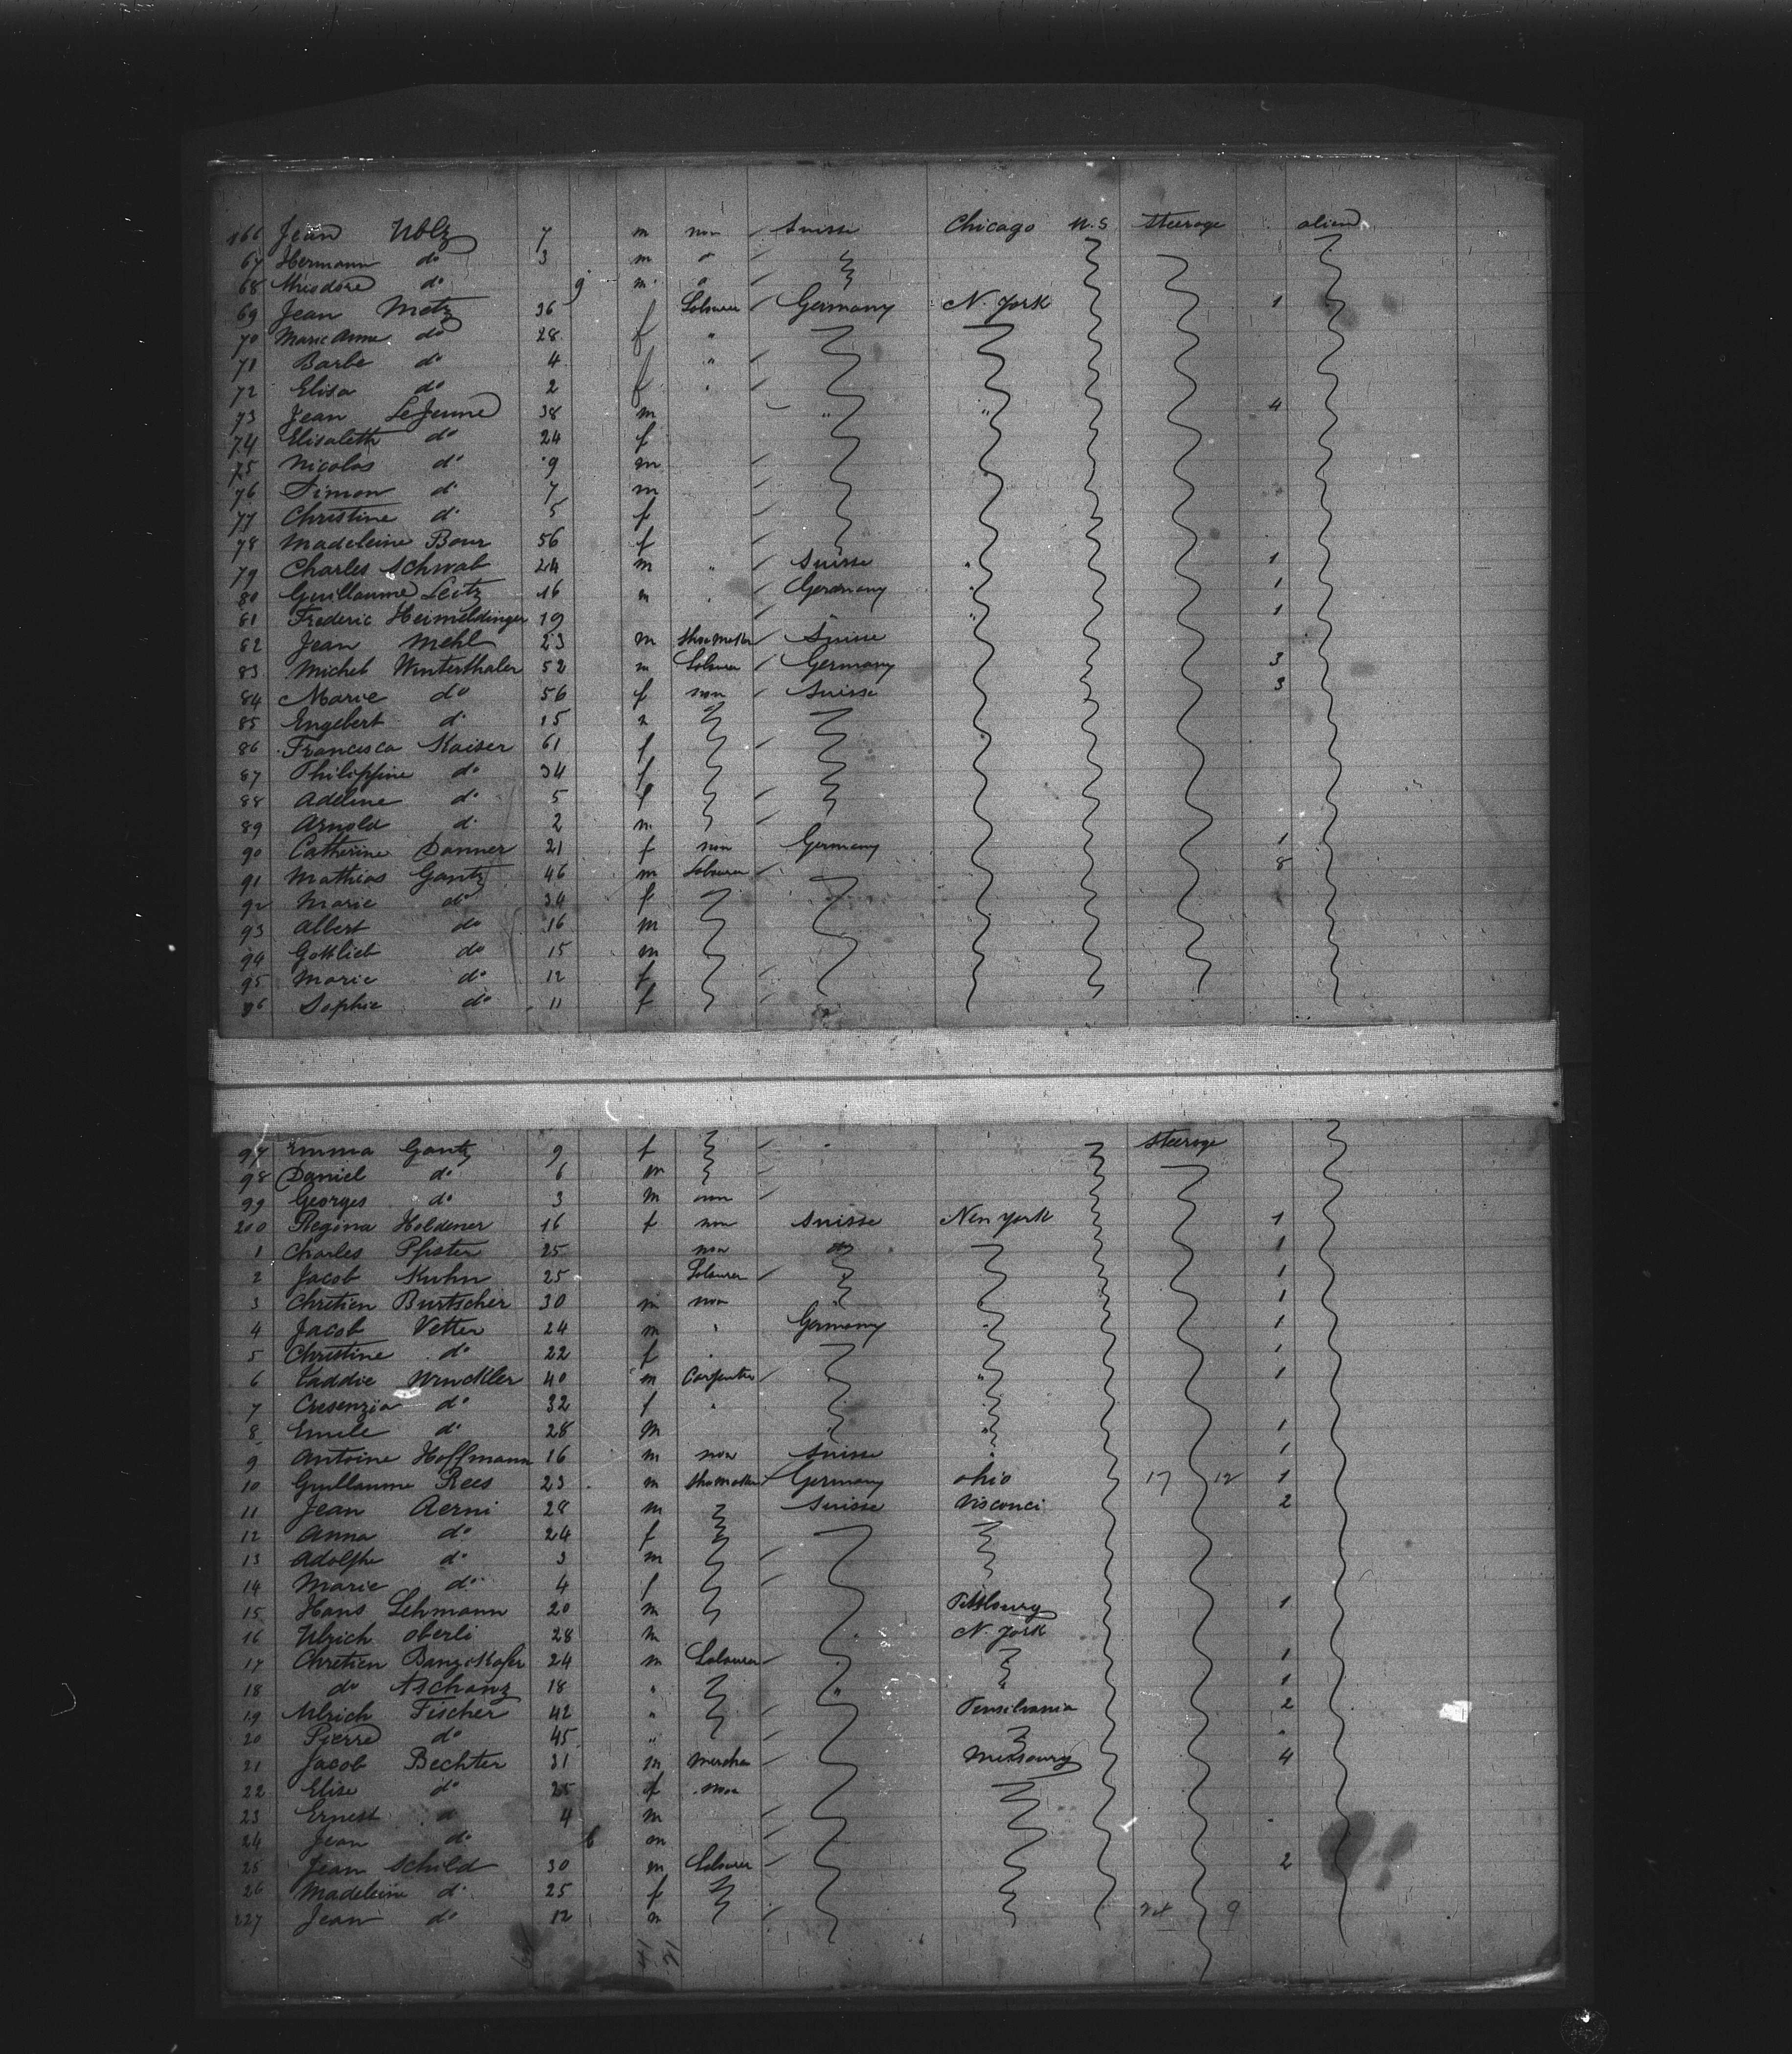 166 Jean Ublz 7 m non Suisse Chicago U.S steerage alien
67 Hermann do 3 m "
68 Théodore do 9 m "
69 Jean Metz 36 f Labourer Germany N. York 1
70 Marie Anne do 28 f "
71 Barbe do 4 f "
72 Elisa do 2 f "
73 Jean LeJeune 38 m " " 4
74 Elisabeth do 24 f
75 Nicolas do 9 m
76 Simon do 7 m
77 Christine do 5 f
78 Madeleine Bour 56 f
79 Charles Schwab 24 m " Suisse " 1
80 Guillaume Leitz 16 m " Germany " 1
81 Frederic Heimeldinger 19 " 1
82 Jean Mehl 23 m Shoemaker Suisse
83 Michel Winterthaler 52 m Labourer Germany 3
84 Marie do 56 f non Suisse 3
85 Engelbert do 15
86 Francisca Kaiser 61 f
87 Philippine do 34 f
88 Adeline do 5 f
89 Arnold do 2 m
90 Catherine Danner 21 f non Germany 1
91 Mathias Gantz 46 m Labourer 8
92 Marie do 34 f
93 Albert do 16 m
94 Gottlieb do 15 m
95 Marie do 12 f
96 Sophie do 11 f
97 Emma Gantz 9 f steerage
98 Daniel do 6 m
99 Georges do 3 m non
200 Regina Holdener 16 f non Suisse New York 1
1 Charles Pfister 25 non do 1
2 Jacob Kuhn 25 Labourer 1
3 Chretien Burtscher 30 m non 1
4 Jacob Vetter 24 m " Germany " 1
5 Christine do 22 f " 1
6 Winckler 40 m Carpenter " 1
7 Cresenzia do 32 f "
8 Emile do 28 m " " 1
9 Antoine Hoffmann 16 m non Suisse " 1
10 Guillaume Rees 23 m Shoemaker Germany ohio 17 12 1
11 Jean Aerni 28 m Suisse Visconci 2
12 Anna do 24 f
13 Adolphe do 3 m
14 Marie do 4 f
15 Hans Lehmann 20 m Pittsburg 1
16 Ulrich Oberli 28 m N. York
17 Chretien 24 m Labourer 1
18 do Aschanz 18 " " " 1
19 Ulrich Fischer 42 " Pensilvania 2
20 Pierre do 45 " "
21 Jacob Bechter 31 m Mercha Missoury 4
22 Elise do 25 f non
23 Ernest d 4 m
24 Jean do 6 m
25 Jean Schild 30 m Labourer 2
26 Madeleine d 25 f
227 Jean do 12 m 9